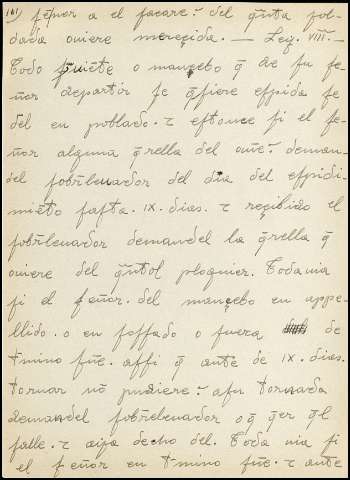 (61) señor a el sacare. del q̃nta sol-
dada ouiere mereçida. — Ley. VIII. —
Todo siruiẽte o mançebo q̃ de su se-
ñor departir se q̃siere espida se
del en poblado. τ estonce si el se-
ñor alguna q̃rella del ouiere deman-
del sobrleuador del dia del espidi-
miẽto fasta. IX. dias. τ reçibido el
sobrleuador demandel la q̃rella q̃
ouiere del q̃ntol ploguier. Toda uia
si el señor. del mançebo en appe-
llido. o en fossado o fuera de
tmino fue. assi q̃ ante de IX. dias.
tornar nõ pudiere. a su tornada
demandel sobrleuador o q̃ q̃er q̃l
falle. τ aya decho del. Toda uia si
el señor en tmino fue. τ ante